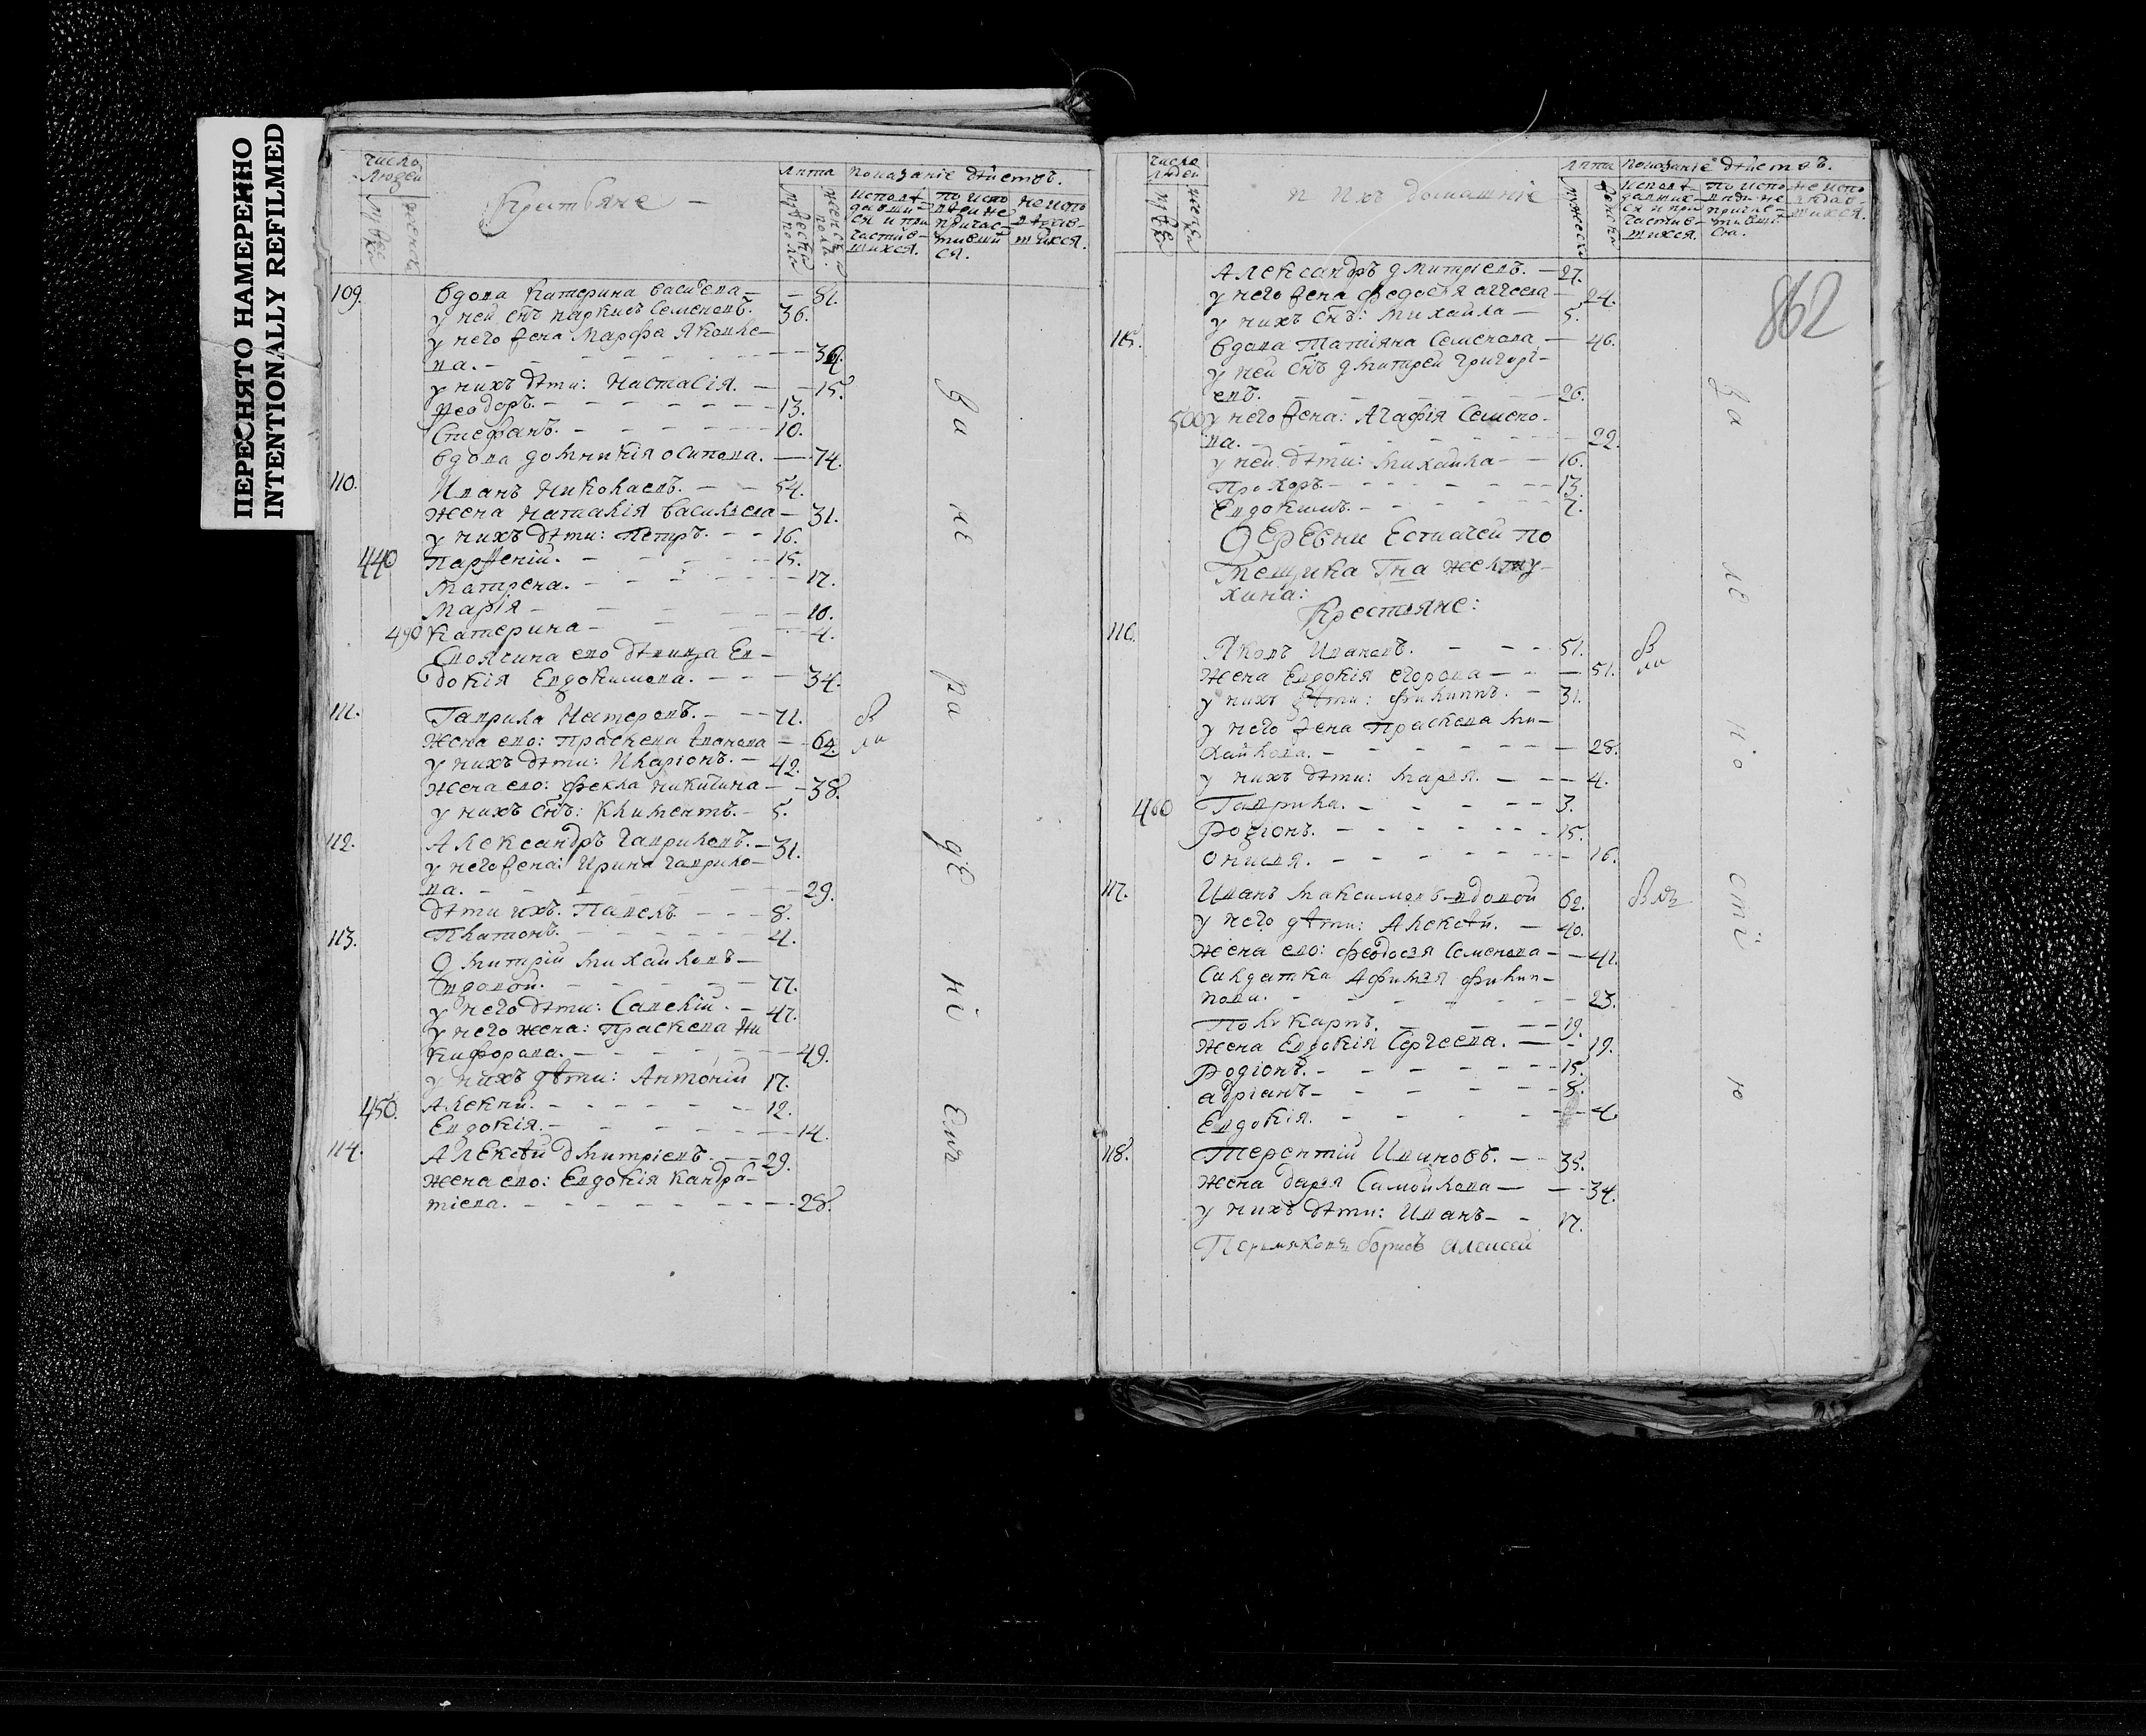 ПЕРЕСНЯТО НАМЕРЕННО
INTENTIONALLY REFILMED
число людей
Крестьяне
лѣта
Показаніе дѣйствъ.
мужеска полу
женска полу.
исповѣдавшихся и причастившихся.
по исповѣди не причастившихся.
не исповѣдавшихся.
109. Вдова Катерина Васильева — 81.
у ней снъ Наркисъ Семеновъ. 36.
у него жена Марфа Яковле-
ва. —
у нихъ дѣти: Настасія. — 15.
Ѳеодоръ. — 13.
Стефанъ. — 10.
Вдова Домникія Осипова. — 74.
110. Иванъ Николаевъ. — 54.
Жена Наталія Васильева — 31.
у нихъ дѣти: Петръ. — 16.
440 Парѳеній. — 15.
Матрена. — 17.
Марія — 10.
490 Катерина — 4.
Своячина ево дѣвица Ев-
докія Евдокимова. — 34.
111. Гаврила Нестеровъ. — 71.
Жена ево: Праскева Иванова — 64.
у нихъ дѣти: Иларіонъ. — 42.
Жена ево: Фекла Никитина — 38.
у нихъ снъ: Климентъ. — 5.
112. Александръ Гавриловъ. — 31.
у него жена: Ирина Гаврило-
ва. — 29.
дѣти ихъ. Павелъ — 8.
113. Платонъ. — 4.
Дмитрій Михайловъ —
вдовой. — 77.
у него дѣти: Савелій. — 47.
у него жена: Праскева Ни
кифорова. — 49.
у нихъ дѣти: Антоній 17.
450. Алексѣй. — 12.
Евдокія. — 14.
114. Алексѣй Дмитріевъ. — 29.
Жена ево: Евдокія Кандра-
тіева. — 28.
За ни ра дѣ ні емъ
число людей
и ихъ домашніе
лѣта
Показаніе дѣйствъ.
862
Александръ Дмитріевъ. — 27.
у него жена Федосья Аггеева — 24.
у нихъ снъ: Михайла — 5.
115. Вдова Татіяна Семенова — 46.
у ней снъ Дмитрей Григорі-
евъ. — 26.
500 у него жена: Агафія Семено-
ва. — 22.
у ней дѣти: Михайла — 16.
Прохоръ. — 13.
Евдокимъ. — 7.
Деревни Естачей по
мещика Гна Желту-
хина:
Крестьяне:
116.
Яковъ Ивановъ. — 51.
Жена Евдокія Егорова — 51.
у нихъ дѣти: Филиппъ. — 31.
у него жена Праскева Ми-
хайлова. — 28.
у нихъ дѣти: Марья. — 4.
460 Гаврила. — 3.
Родіонъ. — 15.
Онисья. — 16.
117. Иванъ Максимовъ вдовой 62.
у него дѣти: Алексѣй. — 40.
Жена ево: Феодосья Семенова — 41.
Салдатка Афимья Филип-
пова. — 23.
Поликарпъ. — 19.
Жена Евдокія Сергеева. — 19.
Родіонъ. — 15.
Адріанъ — 8.
Евдокія. —
118. Терентій Ивановъ. — 35.
Жена Дарья Самойлова — 34.
у нихъ дѣти: Иванъ — 17.
Борисъ Алексей
За ле но сті ю